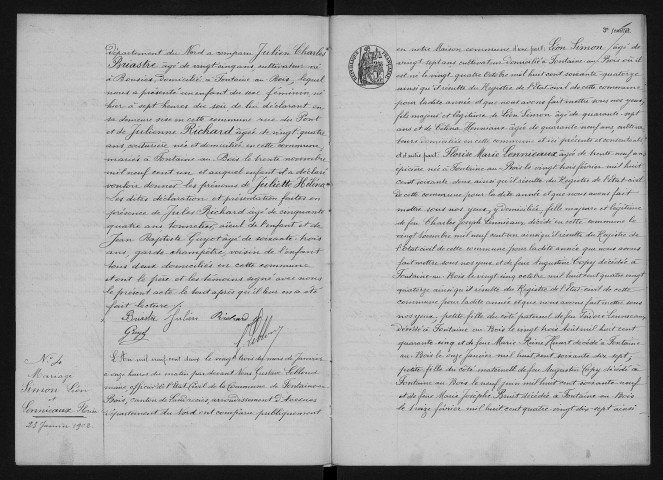 Département du Nord a comparu Julien Charles
Briastre âgé de vingt cinq ans cultivateur né
à Rousies domicilié à Fontaine au Bois, lequel
nous a présenté un enfant du sexe féminin né
hier à sept heures du soir de lui déclarant en
sa demeure sise en cette commune rue du Pont
et de Julienne Richard âgée de vingt quatre
ans couturière née et domiciliée en cette commune
mariés à Fontaine au Bois le trente novembre
mil neuf cent un et auquel enfant il a déclaré
vouloir donner les prénoms de Juliette Hélèna
Les dites déclaration et présentation faites en
présence de Jules Richard âgé de cinquante
quatre ans tonnelier, aïeul de l'enfant et de
Jean Baptiste Guyot âgé de soixante trois
ans, garde champêtre, voisin de l'enfant
tous deux domiciliés en cette commune
et ont le père et les témoins signé avec nous
le présent acte le tout après qu'il leur en a été
fait lecture
Briastre Julien Richard
Guyot
N° 4
Mariage
Simon Léon
et
Lenniveaux Floria
23 Janvier 1902
L'an mil neuf cent deux le vingt trois du mois de Janvier
à onze heures du matin par devant nous Gustave Leblond
maire officier de l'Etat Civil de la Commune de Fontaine au
Bois, canton de Landrecies, arrondissement d'Avesnes
département du Nord ont comparu publiquement
en notre Maison commune d'une part: Léon Simon âgé de
vingt sept ans cultivateur domicilié à Fontaine au Bois où il
est né le vingt quatre Octobre mil huit cent soixante quatorze
ainsi qu'il résulte du Registre de l'Etat civil de cette commune
pour la dite année et que nous avons fait mettre sous nos yeux,
fils majeur et légitime de Léon Simon âgé de quarante sept
ans et de Céline âgée de quarante neuf ans cultiva
teurs domiciliés en cette commune et ici présents et consentants
et d'autre part: Floria Marie Lenniveaux âgée de trente neuf ans
épicière née à Fontaine au Bois le vingt trois février mil huit
cent soixante deux ainsi qu'il résulte du Registre de l'Etat civil
de cette commune pour la dite année et que nous avons fait
mettre sous nos yeux, y domiciliée, fille majeure et légitime
de feu Charles Joseph Lenniveaux décédé en cette commune le
vingt novembre mil neuf cent un ainsi qu'il résulte du Registre de
l'Etat civil de cette commune pour la dite année que nous avons
fait mettre sous nos yeux et de feue Augustine Copy décédée à
Fontaine au Bois le vingt cinq octobre mil huit cent quatre vingt
quatorze ainsi qu'il résulte du Registre de l'Etat civil de cette
commune pour la dite année et que nous avons fait mettre sous
nos yeux, petite fille du côté paternel de feu Lenniveaux
décédé à Fontaine au Bois le vingt trois Août mil huit cent
quatre vingt et de feue Marie Reine Huart décédée à Fontaine
au Bois le onze janvier mil huit cent soixante dix sept,
petite fille du côté maternel de feu Augustin Copy décédé à
Fontaine au Bois le neuf juin mil huit cent soixante neuf
et de feue Marie Josephe Bruit décédée à Fontaine au Bois
le treize février mil huit cent quatre vingt dix sept ainsi